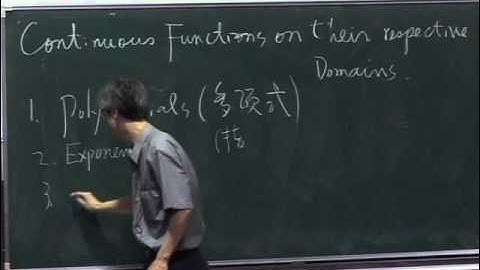 Continuous Functions on their respective
Domains.
1. Poly ials (多項式)
2. Exponen (指
3.